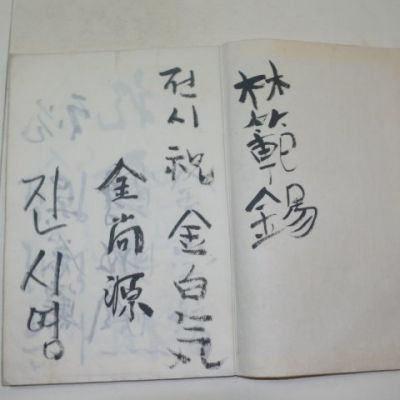 林範錫
전시 祝 金白
金尚源
진시영